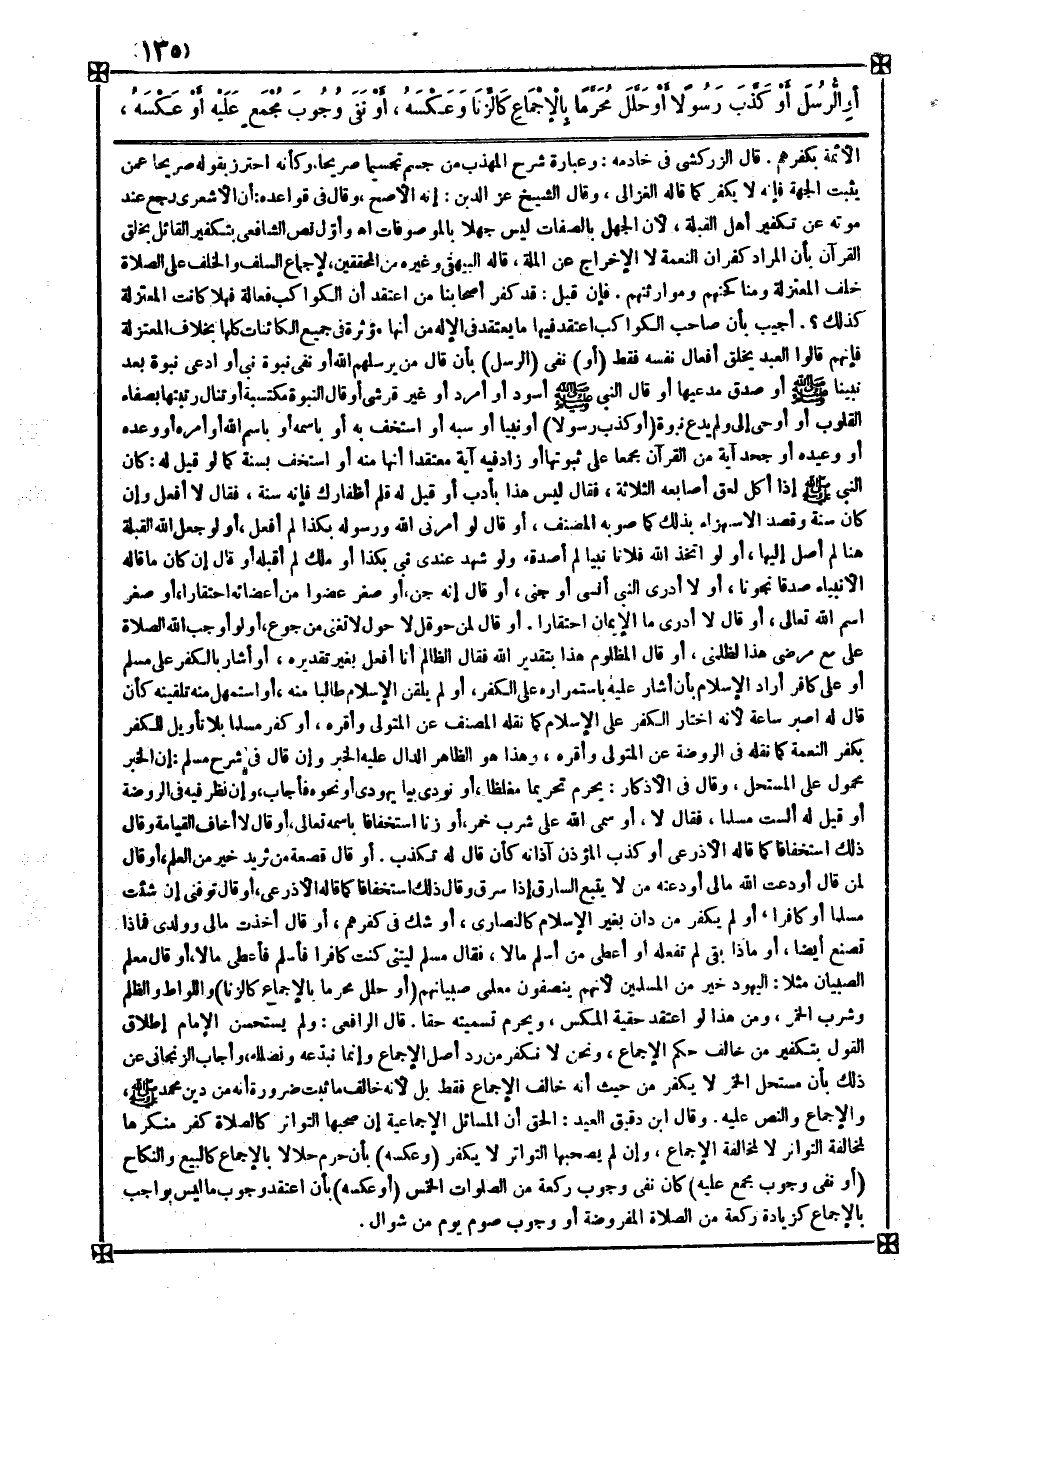 (١٣٥)
أَوِ الرُّسُلَ أَوْ كَذَّبَ رَسُولًا أَوْ حَلَّلَ مُحَرَّمًا بِالْإِجْمَاعِ كَالزِّنَا وَعَكْسَهُ ، أَوْ نَفَى وُجُوبَ مُجْمَعٍ عَلَيْهِ أَوْ عَكْسَهُ ،
الأئمة بكفرهم . قال الزركشى فى خادمه : وعبارة شرح المهذب من جسم تجسيما صريحا، وكأنه احترز بقوله صريحا عمن
يثبت الجهة فإنه لا يكفر كما قاله الغزالى ، وقال الشيخ عز الدين : إنه الأصح ، وقال فى قواعده: أن الأشعرى رجع عند
موته عن تكفير أهل القبلة ، لأن الجهل بالصفات ليس جهلا بالموصوفات اه وأوّل نص الشافعى بتكفير القائل بخلق
القرآن بأن المراد كفران النعمة لا الإخراج عن الملة ، قاله البيهقى وغيره من المحققين، لإجماع السلف والخلف على الصلاة
خلف المعتزلة ومناكحتهم وموارثتهم . فإن قيل : قد كفر أصحابنا من اعتقد أن الكواكب فعالة فهلا كانت المعتزلة
كذلك ؟ . أجيب بأن صاحب الكواكب اعتقد فيها ما يعتقد فى الإله من أنها مؤثرة فى جميع الكائنات كلها بخلاف المعتزلة
فإنهم قالوا العبد يخلق أفعال نفسه فقط (أو) نفى (الرسل) بأن قال من يرسلهم الله أو نفى نبوة نبى أو ادعى نبوة بعد
نبينا ﷺ أو صدق مدعيها أو قال النبى ﷺ أسود أو أمرد أو غير قرشى أو قال النبوة مكتسبة أو تنال رتبتها بصفاء
القلوب أو أوحى إلى ولم يدع نبوة (أو كذب رسولا) أو نبيا أو سبه أو استخف به أو باسمه أو باسم الله أو أمره أو وعده
أو وعيده أو جحد آية من القرآن مجمعا على ثبوتها أو زاد فيه آية معتقدا أنها منه أو استخف بسنة كما لو قيل له : كان
النبى ﷺ إذا أكل لعق أصابعه الثلاثة ، فقال ليس هذا بأدب أو قيل له قلم أظفارك فإنه سنة ، فقال لا أفعل وإن
كان سنة وقصد الاستهزاء بذلك كما صوبه المصنف ، أو قال لو أمرنى الله ورسوله بكذا لم أفعل ، أو لو جعل الله القبلة
هنا لم أصل إليها ، أو لو اتخذ الله فلانا نبيا لم أصدقه ولو شهد عندى نبى بكذا أو ملك لم أقبله أو قال إن كان ما قاله
الأنبياء صدقا نجونا ، أو لا أدرى النبى أنسى أو جنى ، أو قال إنه جن، أو صغر عضوا من أعضائه احتقارا، أو صغر
اسم الله تعالى ، أو قال لا أدرى ما الإيمان احتقارا . أو قال لمن حوقل لا حول لا تغنى من جوع، أو لو أوجب الله الصلاة
على مع مرضى هذا لظلمنى ، أو قال المظلوم هذا بتقدير الله فقال الظالم أنا أفعل بغير تقديره ، أو أشار بالكفر على مسلم
أو على كافر أراد الإسلام بأن أشار عليه باستمراره على الكفر، أو لم يلقن الإسلام طالبا منه ، أو استمهل منه تلقينه كأن
قال له اصبر ساعة لأنه اختار الكفر على الإسلام كما نقله المصنف عن المتولى وأقره ، أو كفر مسلما بلا تأويل للكفر
بكفر النعمة كما نقله فى الروضة عن المتولى وأقره ، وهذا هو الظاهر الدال عليه الخبر وإن قال فى شرح مسلم : إن الخبر
محمول على المستحل ، وقال فى الأذكار : يحرم تحريما مغلظا ، أو نودى بيا يهودى أو نحوه فأجاب، وإن نظر فيه فى الروضة
أو قيل له ألست مسلما ، فقال لا ، أو سمى الله على شرب خمر، أو زنا استخفافا باسمه تعالى، أو قال لا أخاف القيامة وقال
ذلك استخفافا كما قاله الأذرعى أو كذب المؤذن آذانه كأن قال له تكذب . أو قال قصعة من ثريد خير من العلم، أو قال
لمن قال أودعت الله مالى أودعته من لا يتبع السارق إذا سرق وقال ذلك استخفافا كما قاله الأذرعى، أو قال توفنى إن شئت
مسلما أو كافرا ، أو لم يكفر من دان بغير الإسلام كالنصارى ، أو شك فى كفرهم ، أو قال أخذت مالى وولدى فماذا
تصنع أيضا ، أو ماذا بقى لم تفعله أو أعطى من أسلم مالا ، فقال مسلم ليتنى كنت كافرا فأسلم فأعطى مالا، أو قال معلم
الصبيان مثلا : اليهود خير من المسلمين لأنهم ينصفون معلمى صبيانهم (أو حلل محرما بالإجماع كالزنا) واللواط والظلم
وشرب الخمر ، ومن هذا لو اعتقد حقية المكس ، ويحرم تسميته حقا . قال الرافعى : ولم يستحسن الإمام إطلاق
القول بتكفير من خالف حكم الإجماع ، ونحن لا نكفر من رد أصل الإجماع وإنما نبدعه ونضلله، وأجاب الزنجانى عن
ذلك بأن مستحل الخمر لا يكفر من حيث أنه خالف الإجماع فقط بل لأنه خالف ما ثبت ضرورة أنه من دين محمد ﷺ ،
والإجماع والنص عليه . وقال ابن دقيق العيد : الحق أن المسائل الإجماعية إن صحبها التواتر كالصلاة كفر منكرها
لمخالفة التواتر لا لمخالفة الإجماع ، وإن لم يصحبها التواتر لا يكفر (وعكسه) بأن حرم حلالا بالإجماع كالبيع والنكاح
(أو نفى وجوب مجمع عليه) كان نفى وجوب ركعة من الصلوات الخمس (أو عكسه) بأن اعتقد وجوب ما ليس بواجب
بالإجماع كزيادة ركعة من الصلاة المفروضة أو وجوب صوم يوم من شوال .